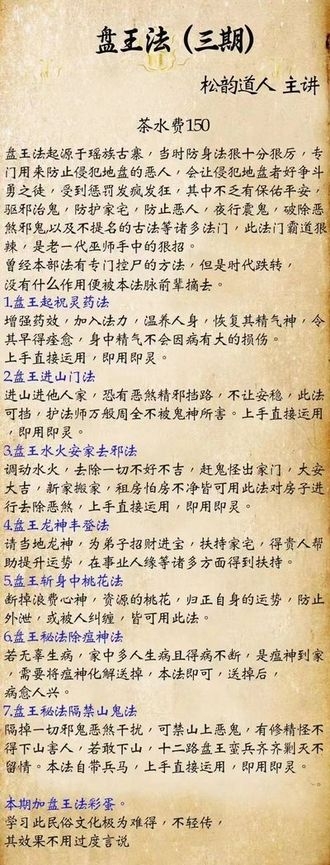 盘王法（三期）
松韵道人 主讲
茶水费150
盘王法起源于瑶族古寨，当时防身法狠十分狠厉，专
门用来防止侵犯地盘的恶人，会让侵犯地盘者好争斗
勇之徒，受到惩罚发疯发狂，其中不乏有保佑平安，
驱邪治鬼，防护家宅，防止恶人，夜行震鬼，破除恶
煞邪鬼以及不提名的古法等诸多法门，此法门霸道狠
辣，是老一代巫师手中的狠招。
曾经本部法有专门控尸的方法，但是时代跌转，
没有什么作用便被本法脉前辈摘去。
1.盘王起祝灵药法
增强药效，加入法力，温养人身，恢复其精气神，令
其早得痊愈，身中精气不会因病有大的损伤。
上手直接运用，即用即灵。
2.盘王进山门法
进山进他人家，恐有恶煞精邪挡路，不让安稳，此法
可挡，护法师万般周全不被鬼神所害。上手直接运用
，即用即灵。
3.盘王水火安家去邪法
调动水火，去除一切不好不吉，赶鬼怪出家门，大安
大吉，新家搬家，租房怕房不净皆可用此法对房子进
行去除恶煞，上手直接运用，即用即灵。
4.盘王龙神丰登法
请当地龙神，为弟子招财进宝，扶持家宅，得贵人帮
助提升运势，在事业人缘等诸多方面得到扶持。
5.盘王斩身中桃花法
断掉浪费心神，资源的桃花，归正自身的运势，防止
外泄，或被人纠缠，皆可用此法。
6.盘王秘法除瘟神法
若无辜生病，家中多人生病且得病不断，是瘟神到家
，需要将瘟神化解送掉，本法即可，送掉后，
病愈人兴。
7.盘王秘法隔禁山鬼法
隔掉一切邪鬼恶煞干扰，可禁山上恶鬼，有修精怪不
得下山害人，若敢下山，十二路盘王蛮兵齐齐剿灭不
留情。本法自带兵马，上手直接运用，即用即灵。
。
本期加盘王法彩蛋。
学习此民俗文化极为难得，不轻传，
其效果不用过度言说